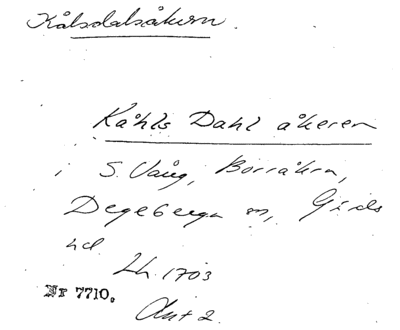 Kålsdalsåkern.
Kåhls Dahl åkeren
i S. Vång, Borråkra,
Degeberga sn, Gärds
hd
Lh. 1703
Nr 7710.
Akt 2.